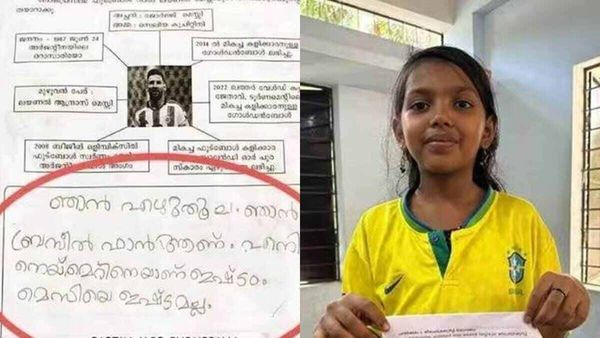 തയാറാക്കൂ
അച്ഛൻ : ജോർജ്ജ് മെസ്സി
അമ്മ : സെലിയ കുചിറ്റിനി
ജനനം - 1987 ജൂൺ 24
അർജന്റീനയിലെ
റൊസാരിയോ
2014 ൽ മികച്ച കളിക്കാരനുള്ള
ഗോൾഡൻബോൾ ലഭിച്ചു.
മുഴുവൻ പേര് :
ലയണൽ ആന്ദ്രേസ് മെസ്സി
2022 ഖത്തർ വേൾഡ്
ജേതാവ്, ടൂർണമെന്റിലെ
മികച്ച കളിക്കാരനുള്ള
ഗോൾഡൻബോൾ
2008 ബീജിങ് ഒളിമ്പിക്സിൽ
ഫുട്ബോൾ സ്വർണം
അർജന്റീന അംഗം
മികച്ച ഫുട്ബോൾ കളിക്കാര
ബാലൻഡി ഓർ പുര
സ്കാരം ലഭിച്ചു.
ഞാൻ എഴുതൂല. ഞാൻ
ബ്രസീൽ ഫാൻ ആണ്. എനി
നെയ്മറിനെയാണ് ഇഷ്ടം
മെസിയെ ഇഷ്ടമല്ല.